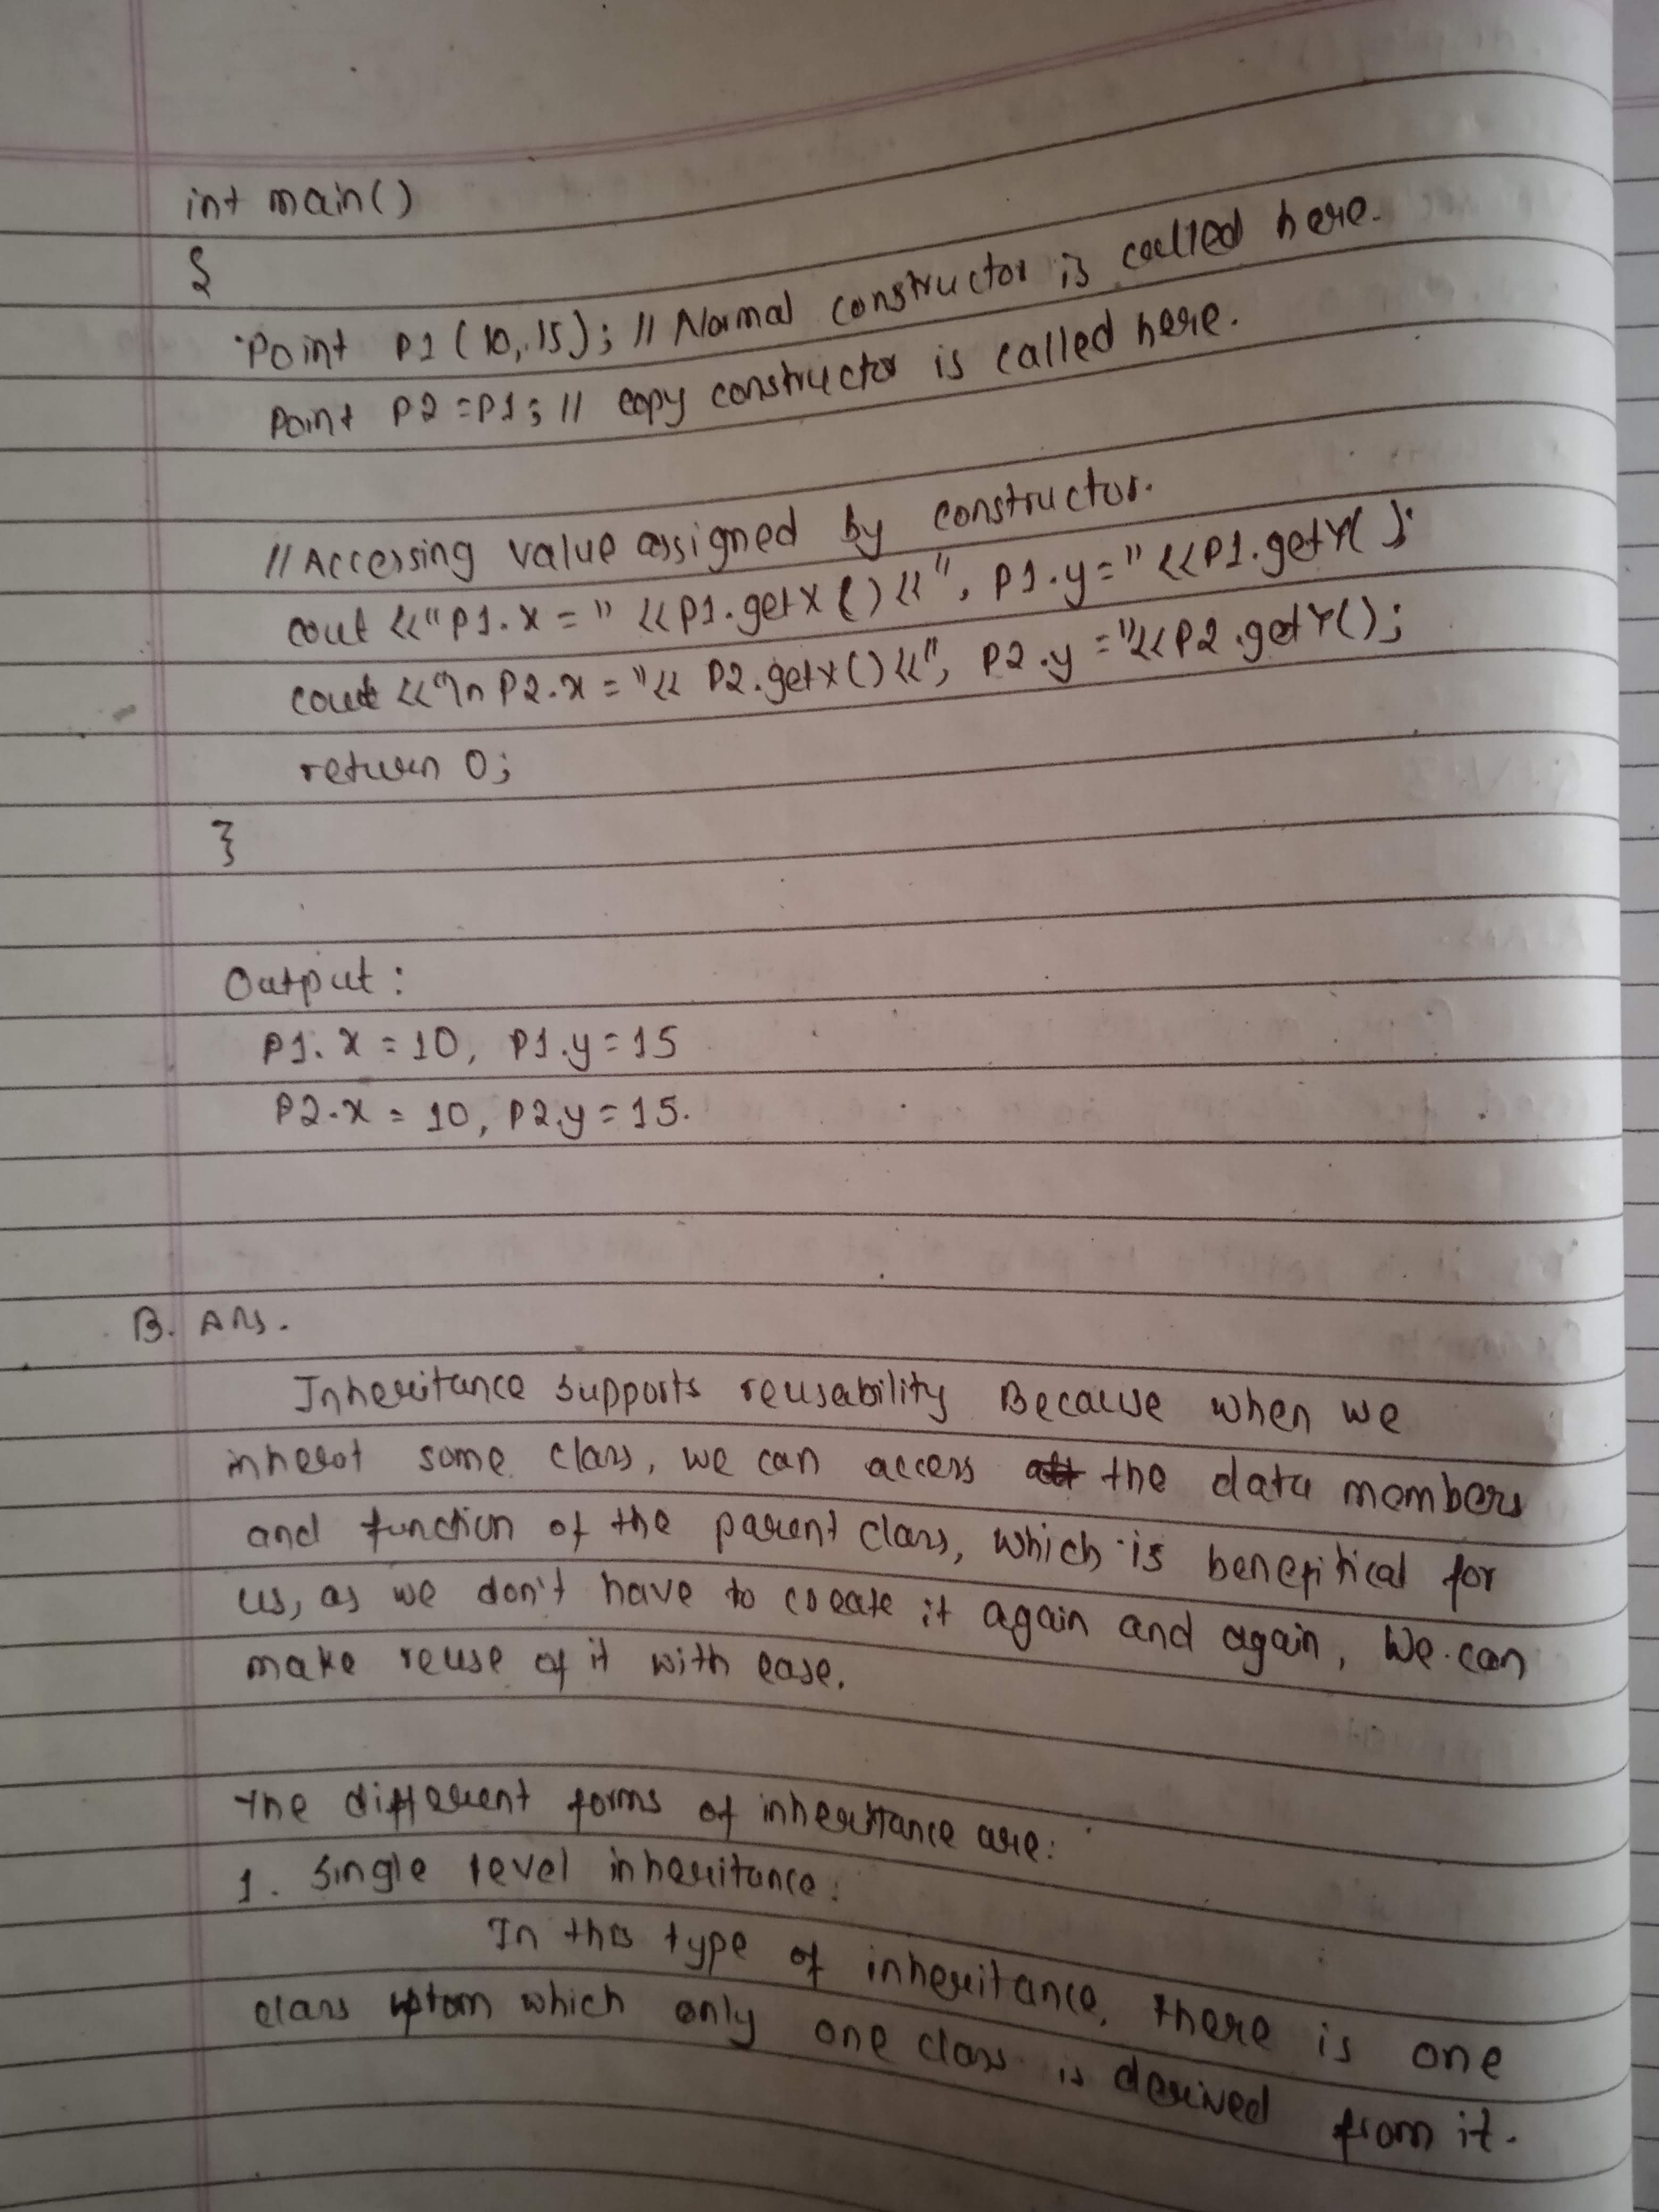 int main()
{
Point P1 (10, 15); // Normal constructor is called here.
Point P2 = P1; // copy constructor is called here.
// Accessing value assigned by constructor.
cout <<"P1.x = " <<P1.getX () <<", P1.y=" <<P1.getY( );
cout <<"\n P2.x = "<< P2.getx() <<", P2.y ="<<P2.getY();
return 0;
}
Output :
P1.x = 10, P1.y = 15
P2.x = 10, P2.y = 15.
B. Ans.
Inheritance supports reusability Because when we
inherit some class, we can access the data members
and function of the parent class, which is benefitical for
us, as we don't have to create it again and again, We can
make reuse of it with ease.
The different forms of inheritance are:
1. Single level inheritance:
In this type of inheritance, there is one
class which only one class is derived from it.